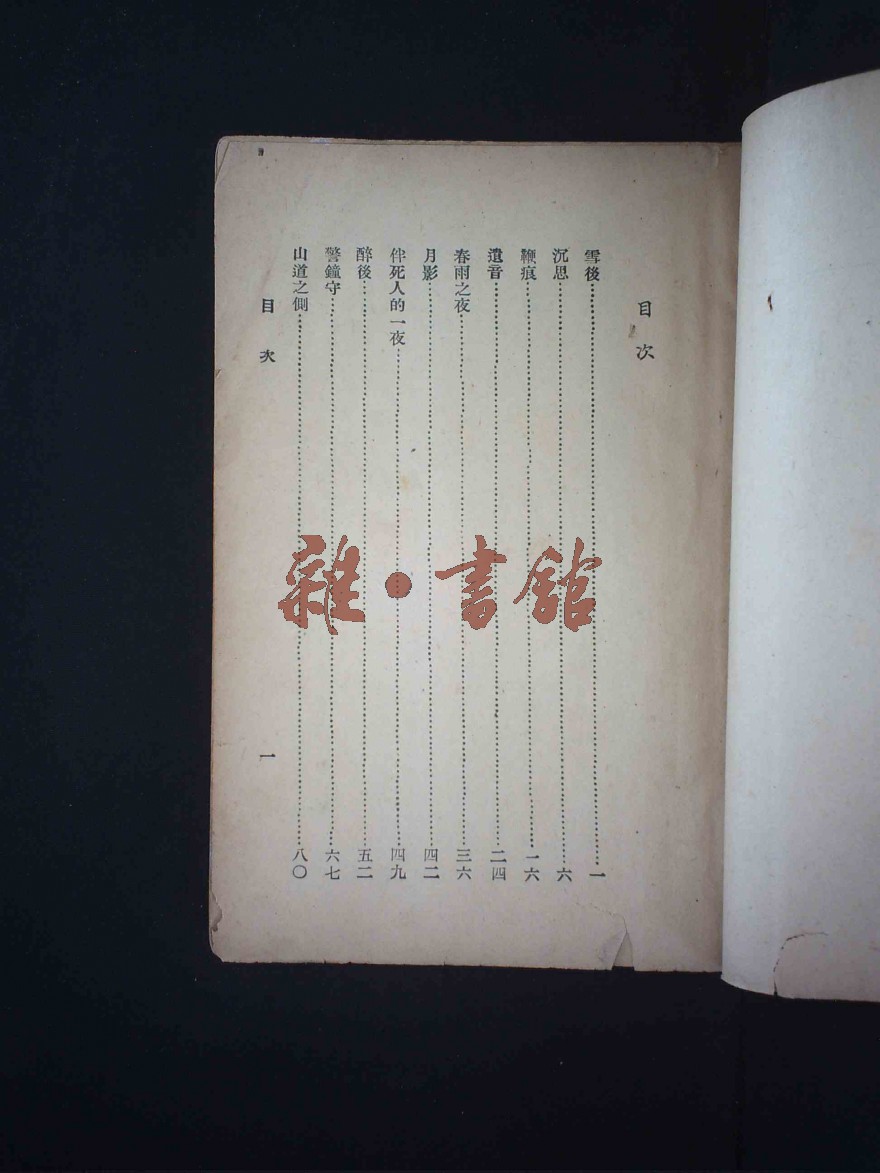 目次
雪後 一
沉思 六
鞭痕 一六
遺音 二四
春雨之夜 三六
月影 四二
伴死人的一夜 四九
醉後 五二
警鐘守 六七
山道之側 八〇
目次 一
雜·書館